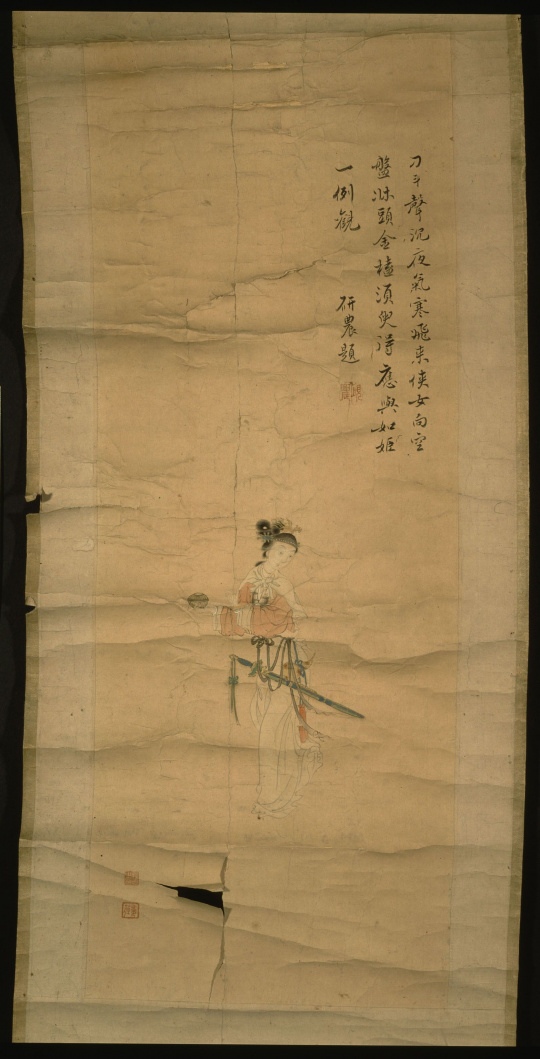 刀斗聲沉夜氣寒飛來俠女向空
盤牀頭金榼須臾得應與如姬
一例觀
研農題